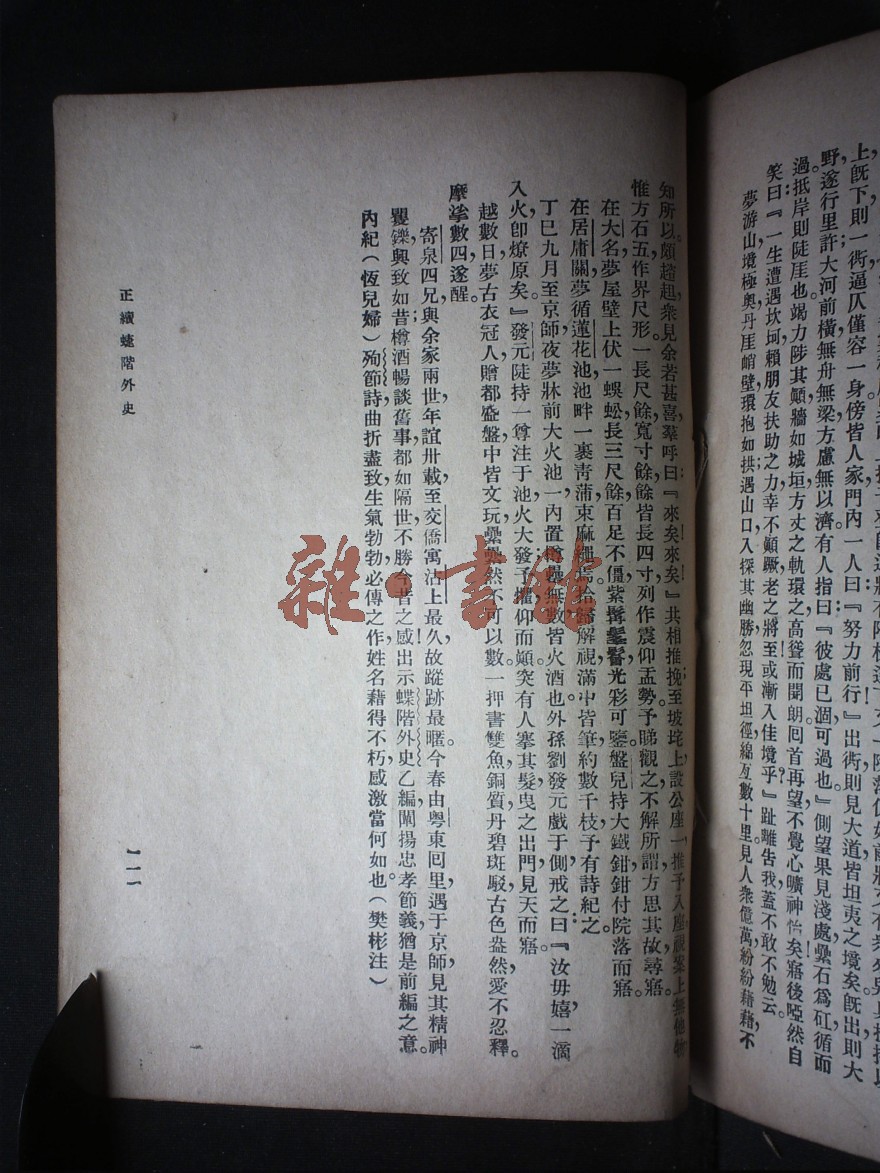 上既下則一衖逼仄僅容一身傍皆人家門內一人曰『努力前行』出衖則見大道皆坦夷之境矣既出則大
野遂行里許大河前橫無舟無梁方慮無以濟有人指曰『彼處已涸可過也』側望果見淺處纍石爲矼循而
過抵岸則陡厓也竭力陟其顛牆如城垣方丈之軌環之高聳而聞朗囘首再望不覺心曠神怡矣寤後啞然自
笑曰『一生遭遇坎坷賴朋友扶助之力幸不顚蹶老之將至或漸入佳境乎』趾離告我蓋不敢不勉云。
夢游山境極奧丹厓峭壁環抱如拱遇山口入探其幽勝忽現平坦徑綿亙數十里見人衆億萬紛紛藉藉不
知所以頗趦趄衆見余若甚喜羣呼曰『來矣來矣』共相推挽至坡垞上設公座一推予入座視案上無他物
惟方石五作界尺形一長尺餘寬寸餘餘皆長四寸列作震仰盂勢予睇觀之不解所謂方思其故尋寤。
在大名夢屋壁上伏一蜈蚣長三尺餘百足不僵紫髯光彩可鑒盤兒持大鐵鉗鉗付院落而寤。
在居庸關夢循蓮花池池畔一裹靑蒲束麻繩焉拾歸解視滿中皆筆約數千枝子有詩紀之。
丁巳九月至京師夜夢牀前大火池一內置罇罍無數皆火酒也外孫劉發元戲于側戒之曰『汝毋嬉一滴
入火卽燎原矣』發元陡持一尊注于池火大發予懼仰而顚突有人搴其髮曳之出門見天而寤
越數日夢古衣冠人贈都盛盤中皆文玩纍纍然不可以數一押書雙魚銅質丹碧斑駁古色盎然愛不忍釋。
摩挲數四遂醒。
寄泉四兄與余家兩世年誼卅載至交僑寓沽上最久故蹤跡最暱今春由粤東囘里遇于京師見其精神
矍鑠興致如昔樽酒暢談舊事都如隔世不勝今昔之感出示蝶階外史乙編闡揚忠孝節義猶是前編之意
內紀(恆兒婦)殉節詩曲折盡致生氣勃勃必傳之作姓名藉得不朽感激當何如也(樊彬注)
正續蝶階外史
一一一
雜·書館